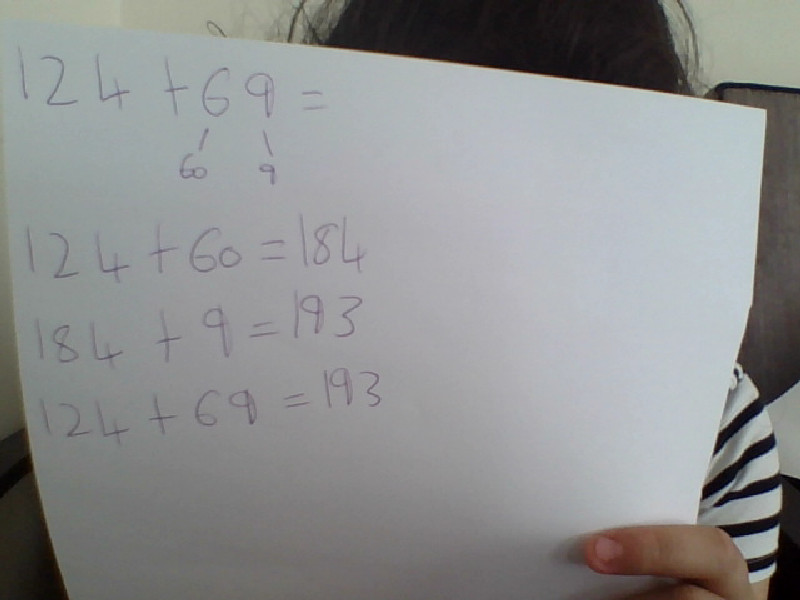 124 + 69 =
60 9
124 + 60 = 184
184 + 9 = 193
124 + 69 = 193